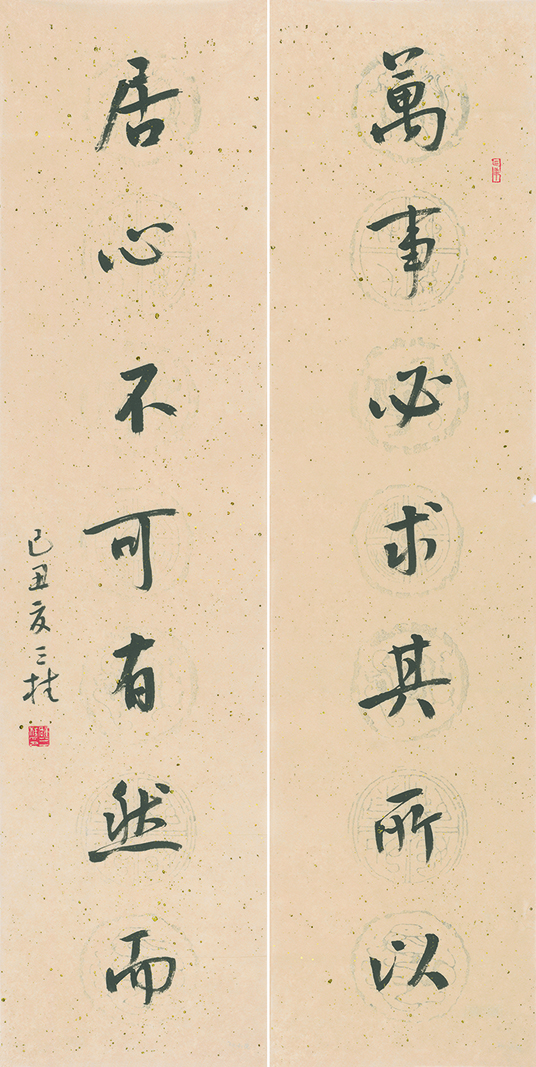 萬事必求其所以
居心不可有然而
己丑夏三林